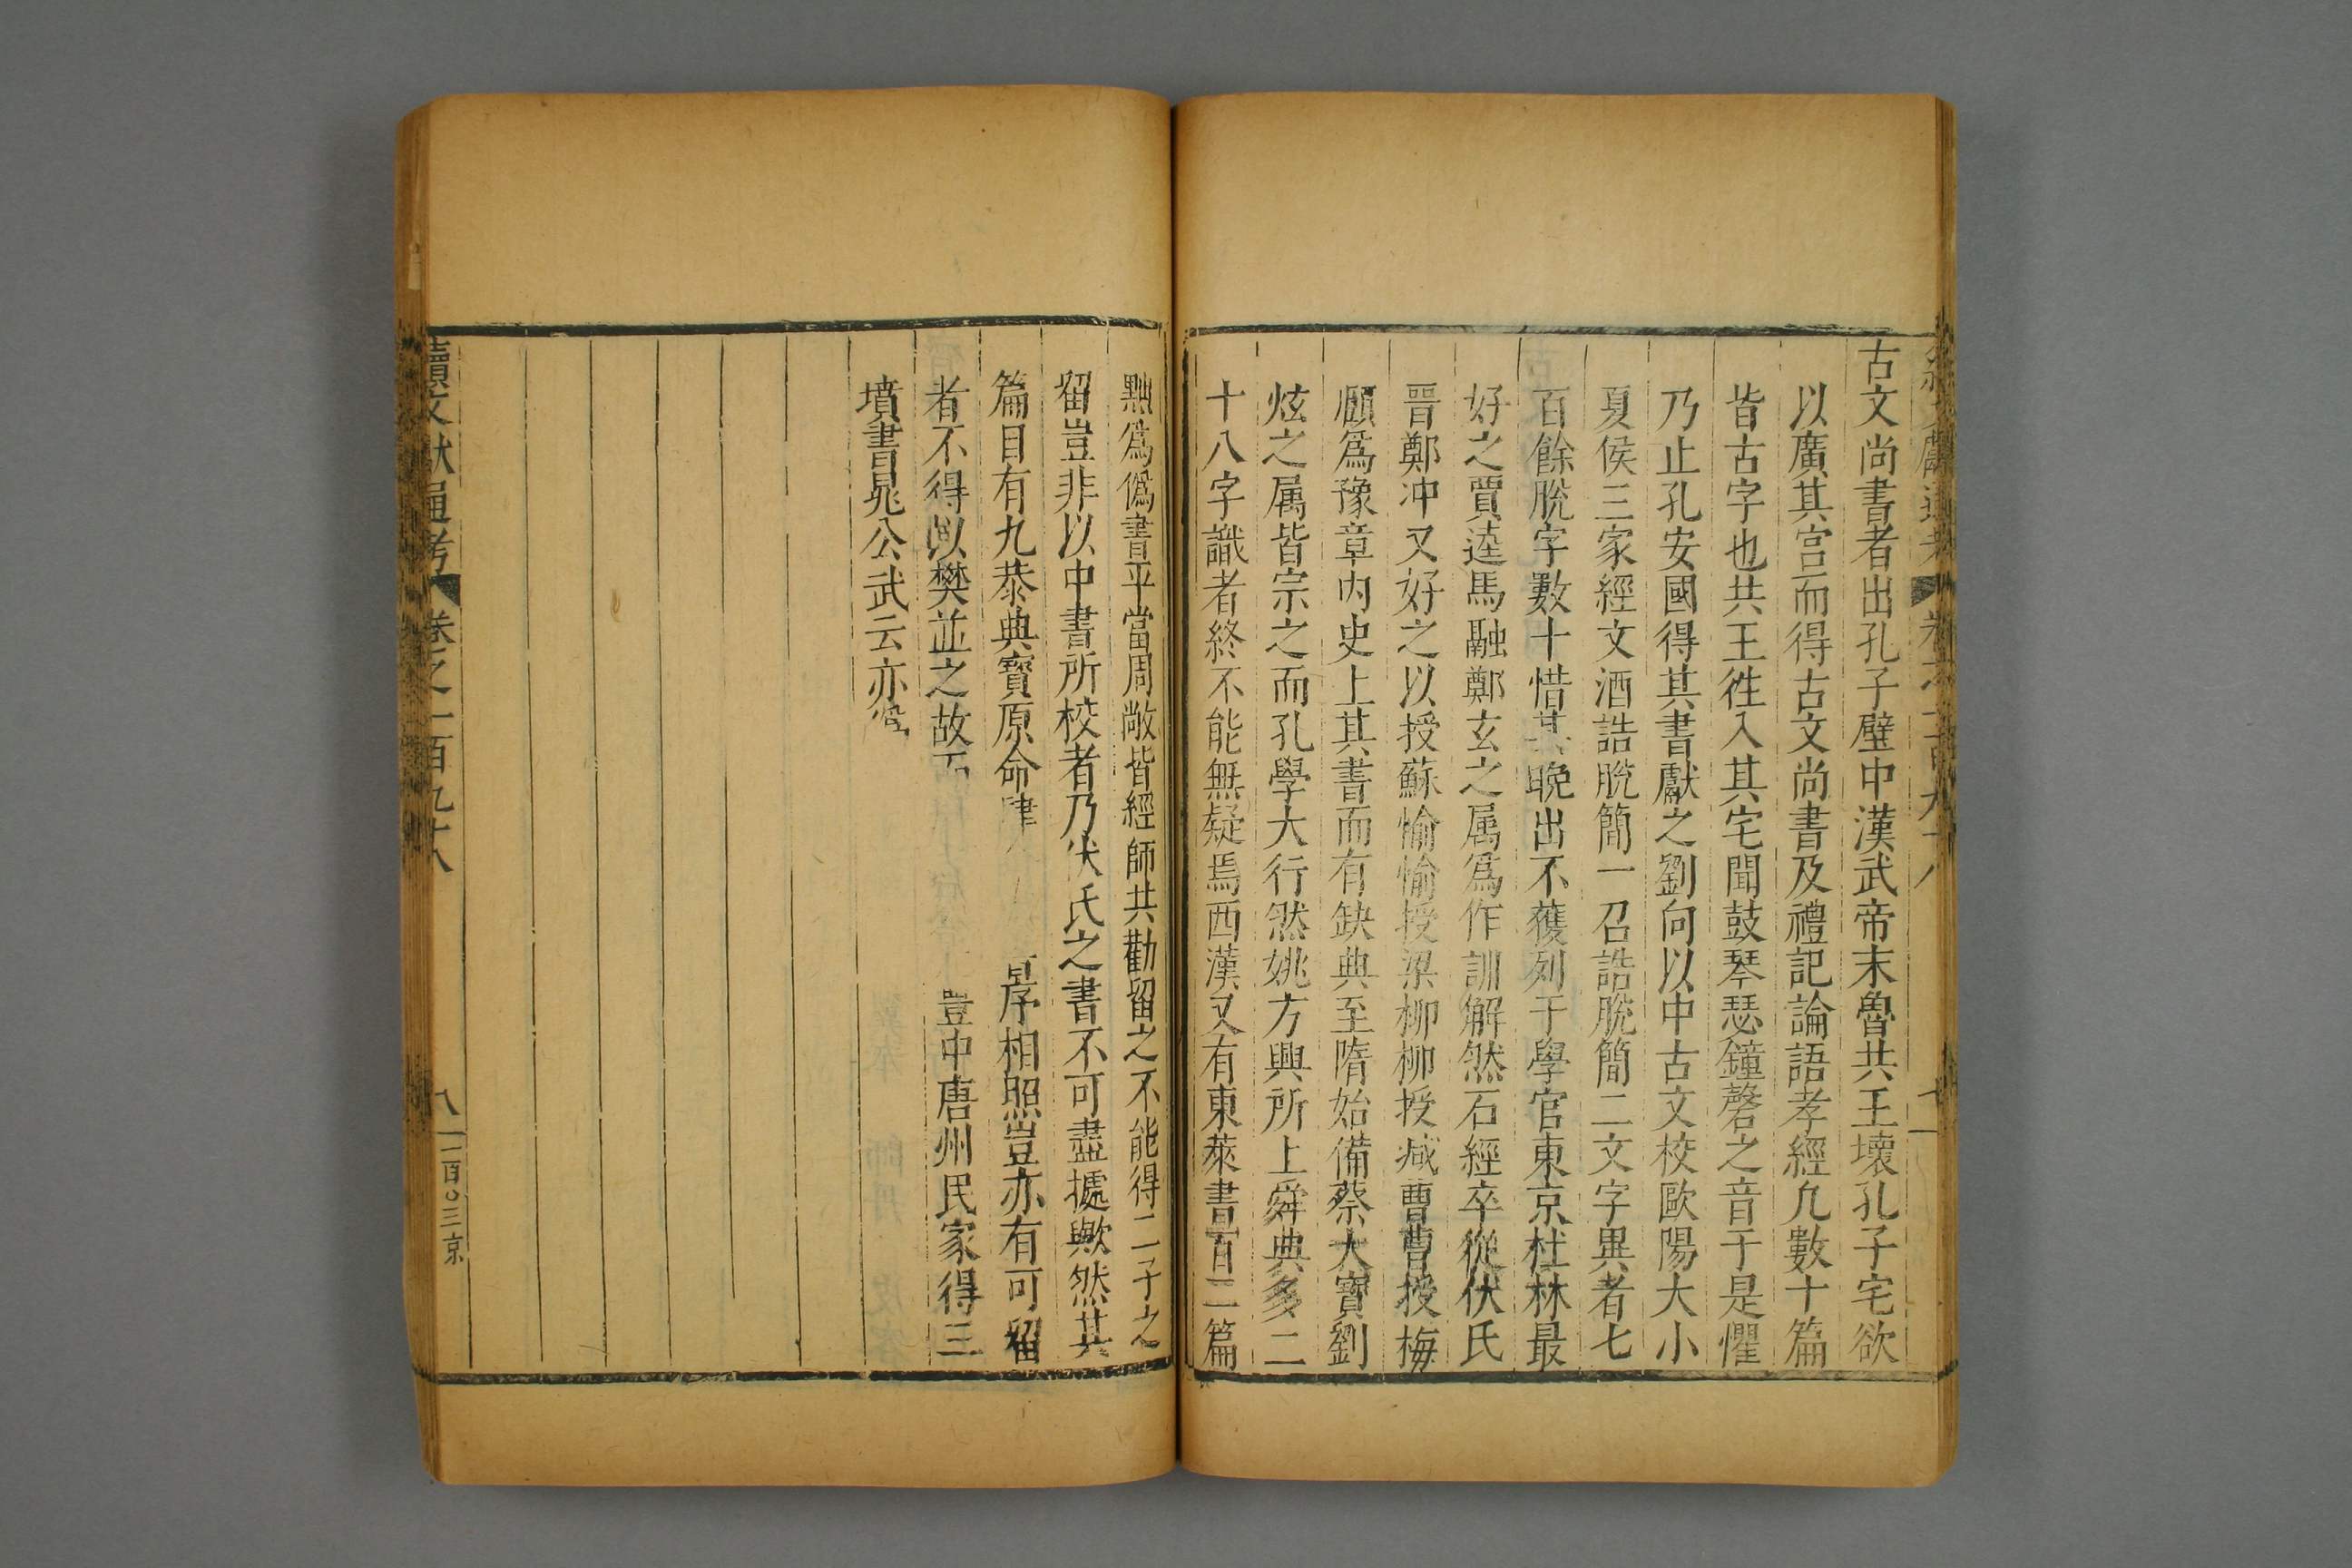 古文尚書者出孔子壁中漢武帝末魯共王壞孔子宅欲
以廣其宫而得古文尚書及禮記論語孝經凢數十篇
皆古字也共王徃入其宅聞鼓琴瑟鐘磬之音于是懼
乃止孔安國得其書獻之劉向以中古文校歐陽大小
夏侯三家經文酒誥脫簡一召誥脫簡二文字異者七
百餘脫字數十惜其晚出不獲列于學官東京杜林最
好之賈逵馬融鄭玄之属爲作訓解然石經卒從伏氏
晋鄭冲又好之以授蘇愉愉授梁柳柳授臧曹曹授梅
頤爲豫章内史上其書而有缺典至隋始備蔡大寶劉
炫之属皆宗之而孔學大行然姚方興所上舜典多二
十八字識者終不能無疑焉西漢又有東萊書百二篇
黜爲僞書平當周敞皆經師共勸留之不能得二子之
留豈非以中書所校者乃伏氏之書不可盡據歟然其
篇目有九恭典寶原命肆序相照豈亦有可留
者不得以樊並之故豈中唐州民家得三
墳書晁公武云亦
續文獻通考 卷之一百九十八
八 一百〇三 京